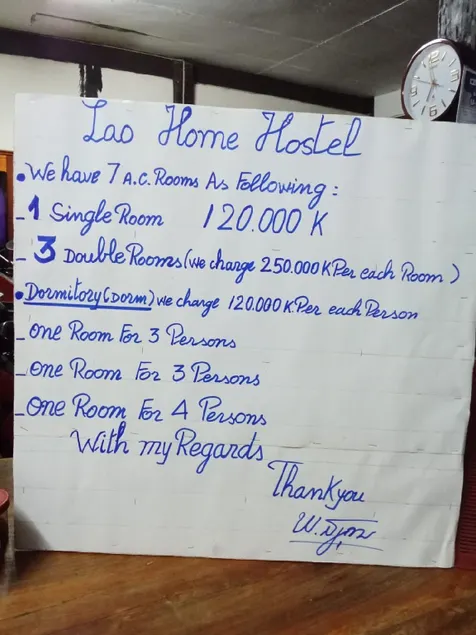 Lao Home Hostel
• We have 7 A.C. Rooms As Following:
- 1 Single Room 120.000 K
- 3 Double Rooms (we charge 250.000 K Per each Room)
• Dormitory (Dorm) we charge 120.000 K. Per each Person
- one Room For 3 Persons
- one Room For 3 Persons
- one Room For 4 Persons
With my Regards
Thankyou